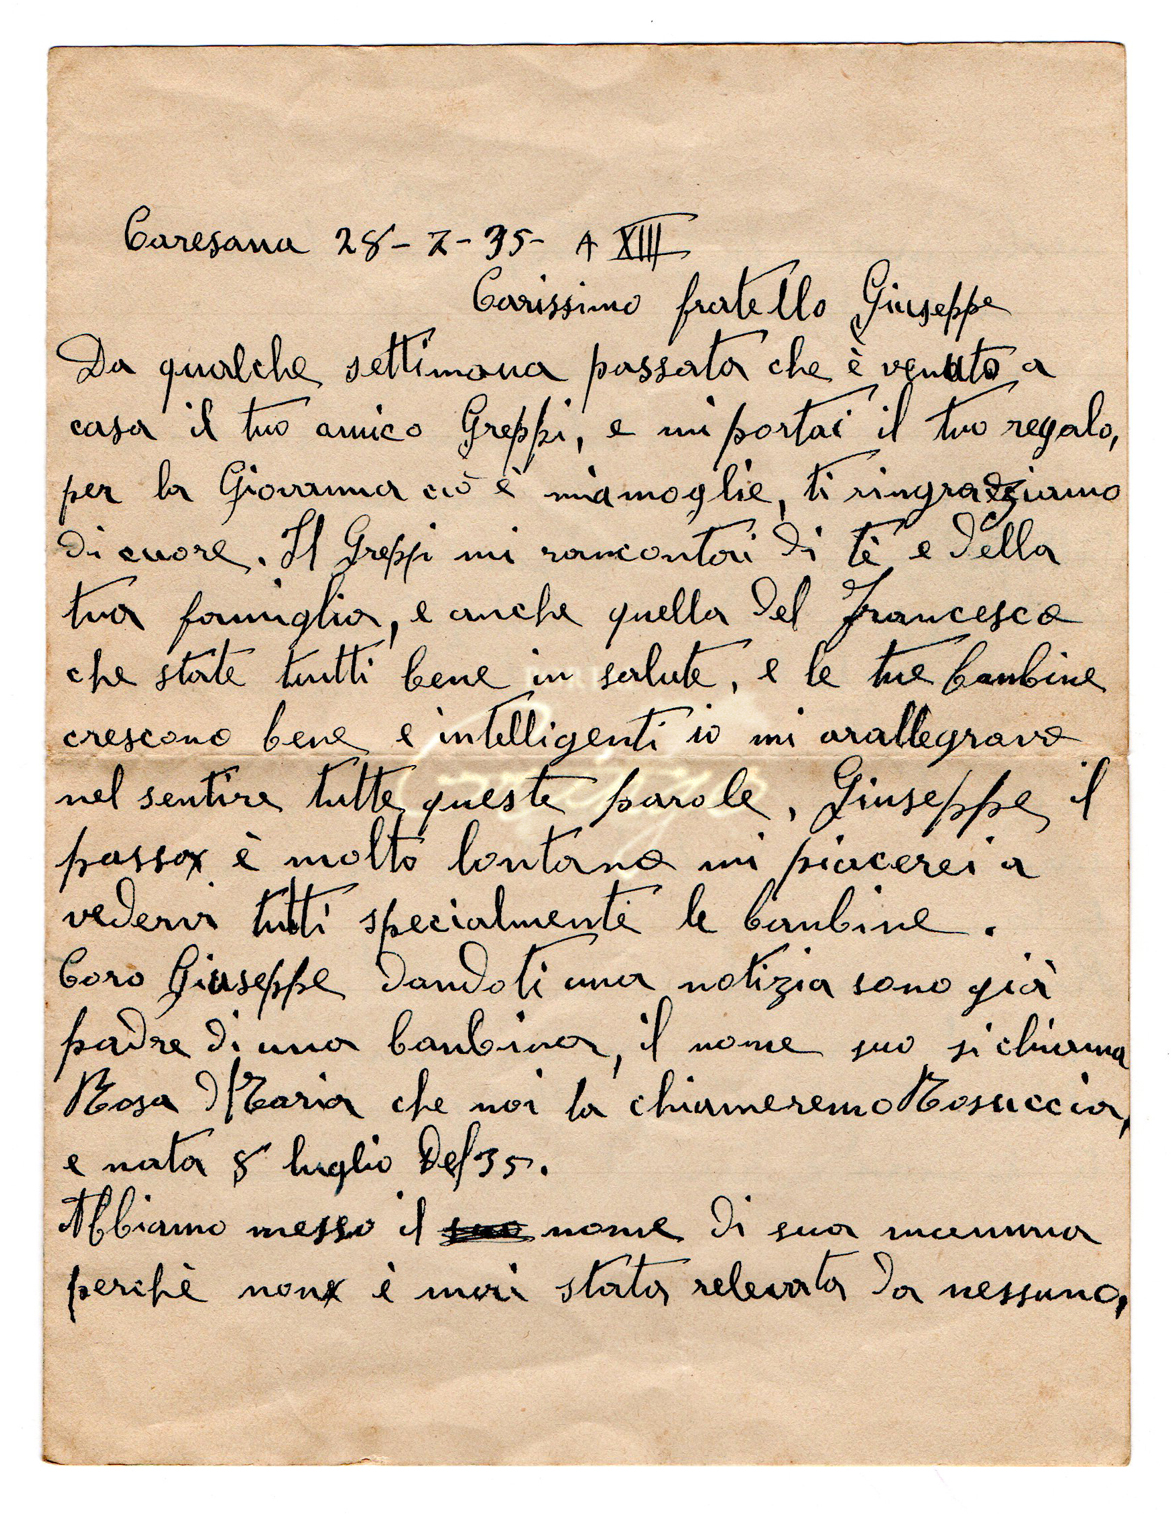 Caresana 28-7-35- A XIII
Carissimo fratello Giuseppe
Da qualche settimana passata che è venuto a
casa il tuo amico Greppi, e mi portai il tuo regalo,
per la Giovanna ciò è miamoglie, ti ringrazziamo
di cuore. Il Greppi mi rancontai di tè e della
tua famiglia, e anche quella del Francesco
che state tutti bene in salute, e le tue banbine
crescono bene e intelligenti io mi arallegravo
nel sentire tutte queste parole, Giuseppe il
passo è molto lontano mi piacerei a
vedervi tutti specialmente le banbine.
Caro Giuseppe dandoti una notizia sono già
padre di una banbina, il nome suo si chiama
Rosa Maria che noi la chiameremo Rosuccia,
e nata 8 luglio Del 35.
Abbiamo messo il suo nome di sua mamma
perchè non è mai stata relevata da nessuno,